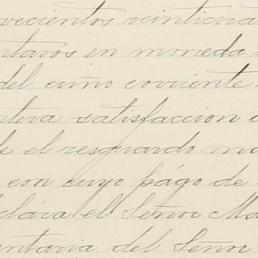 vecientos veinticua
ntavos en moneda
del cuño corriente
ntera satisfaccion
e el resguardo ma
con cuyo pago de
clara el Señor Ma
entaria del Señor